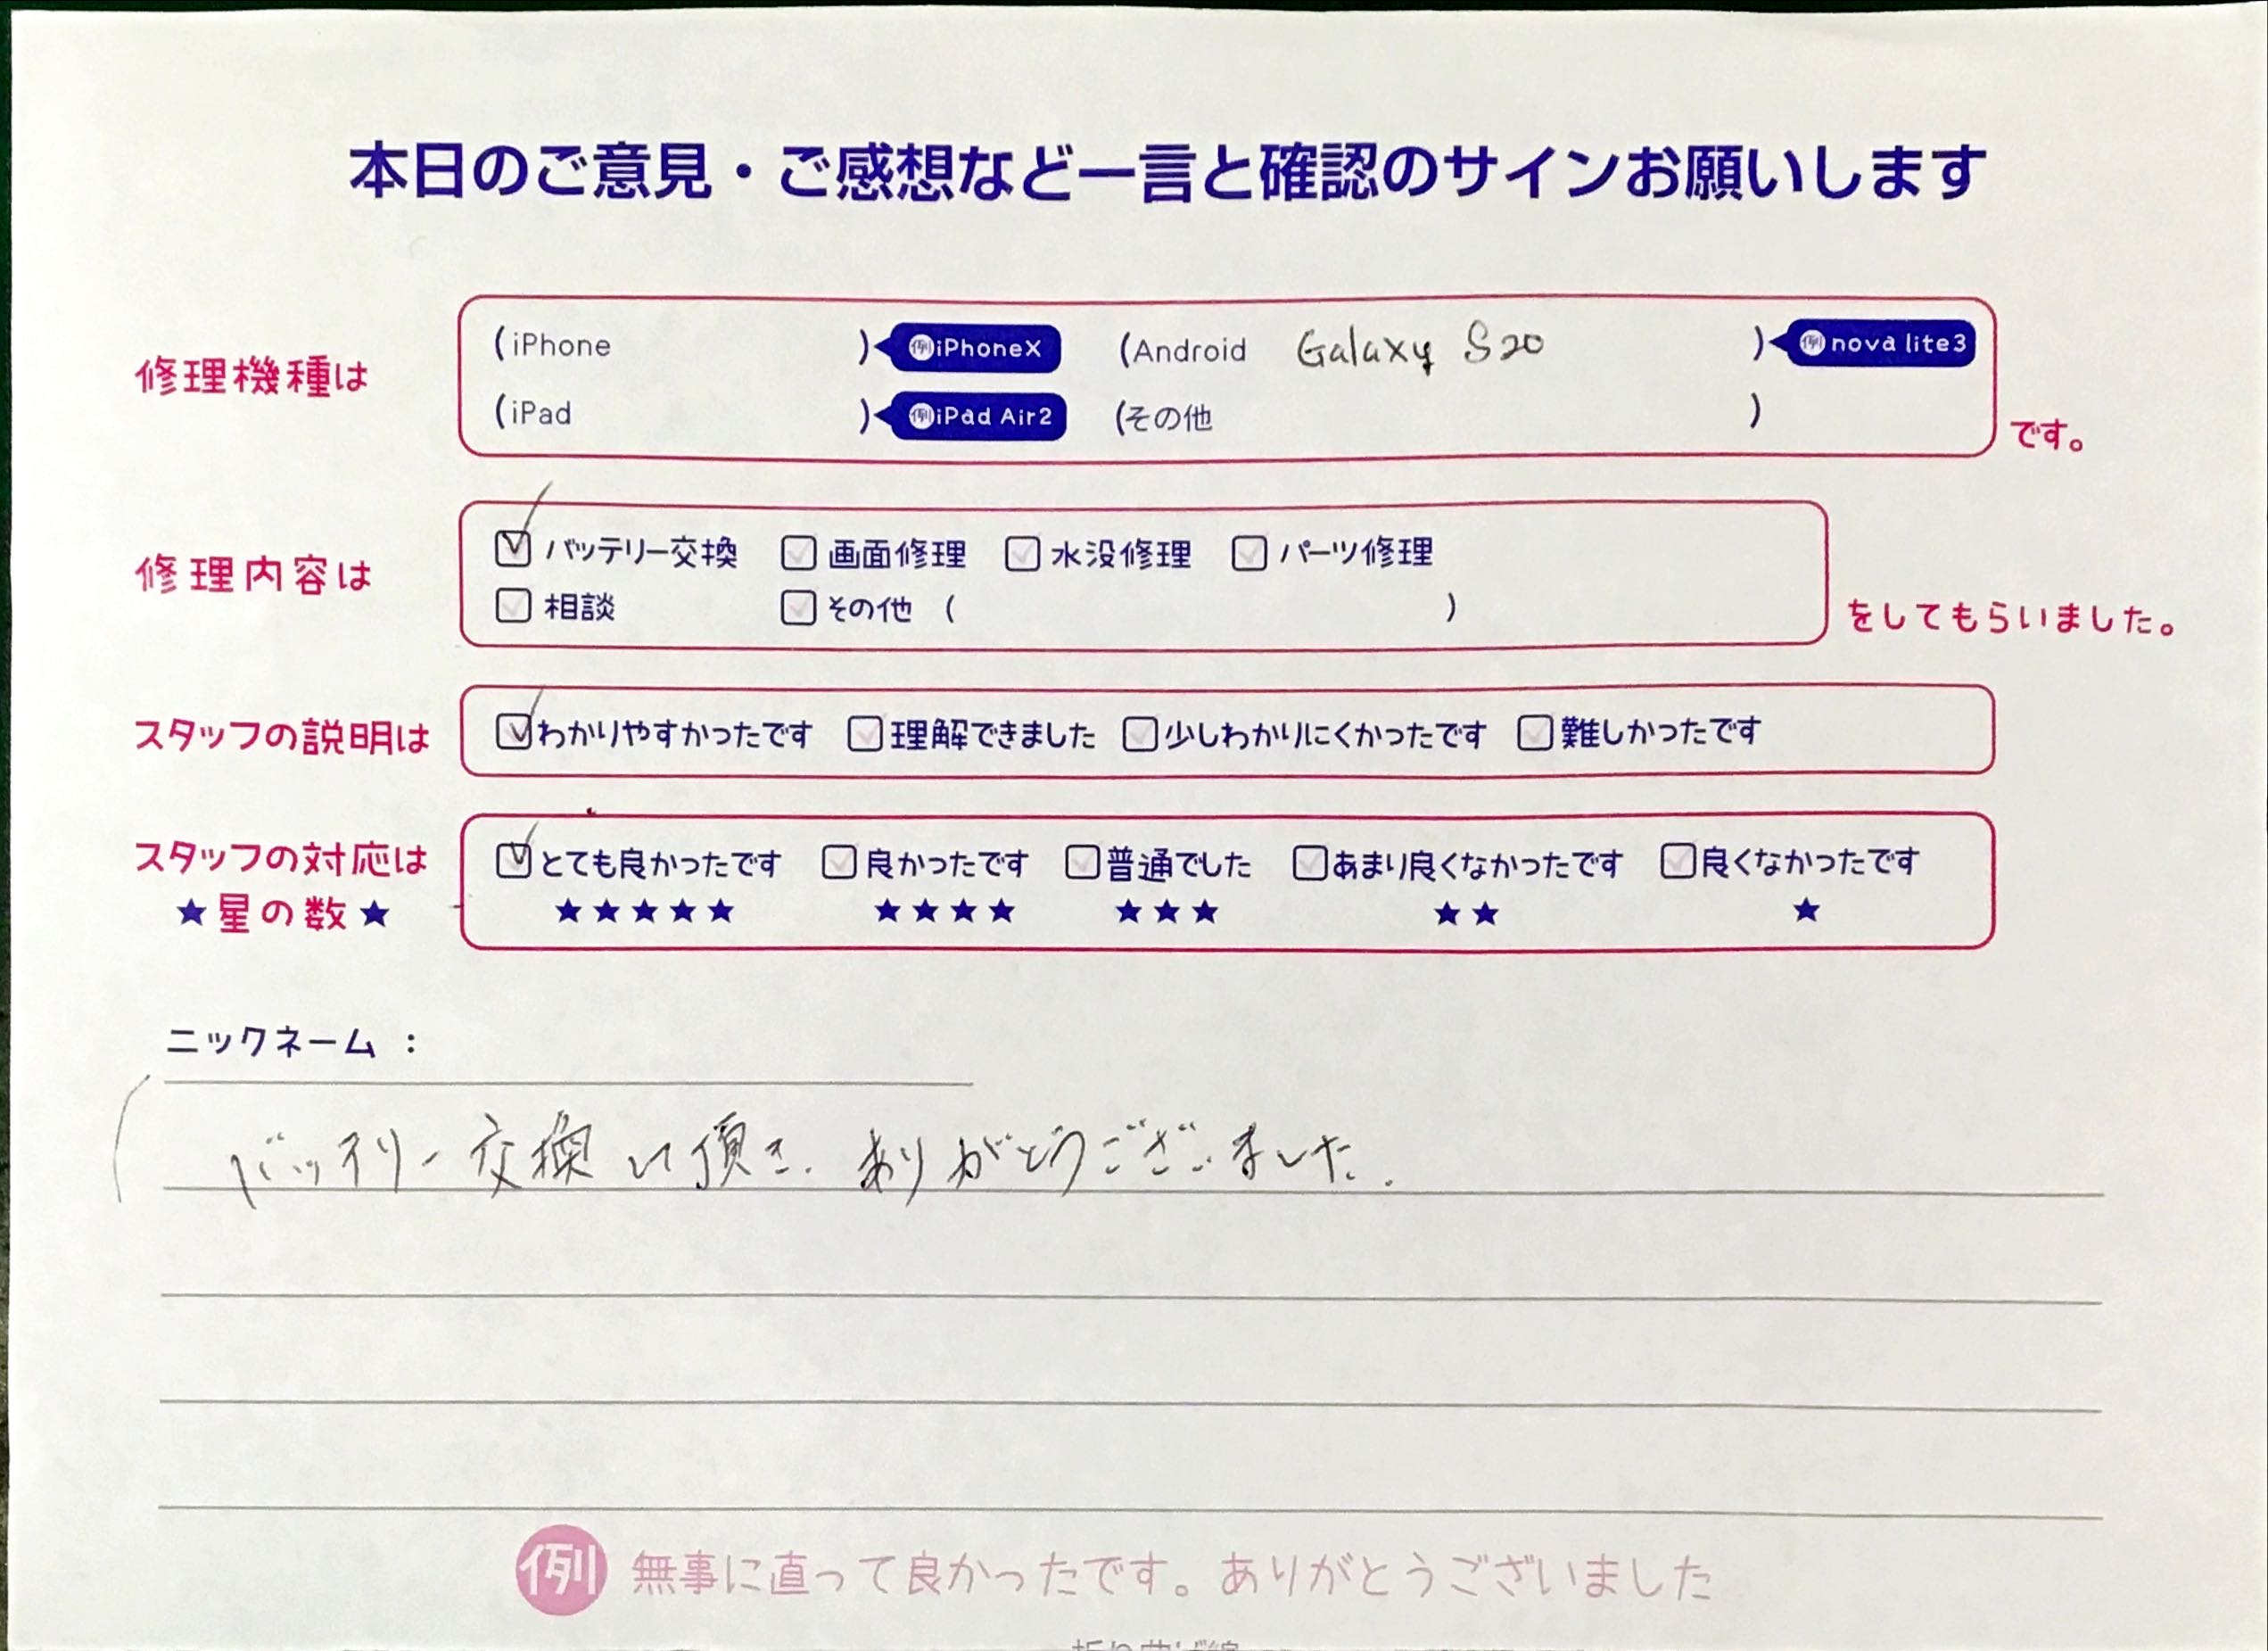 本日のご意見・ご感想など一言と確認のサインお願いします
修理機種は
(iPhone ) 例iPhoneX (Android Galaxy S20 ) 例nova lite3
(iPad ) 例iPad Air2 (その他 )
です。
修理内容は
バッテリー交換 画面修理 水没修理 パーツ修理
相談 その他 ( )
をしてもらいました。
スタッフの説明は
わかりやすかったです 理解できました 少しわかりにくかったです 難しかったです
スタッフの対応は
★星の数★
とても良かったです 良かったです 普通でした あまり良くなかったです 良くなかったです
★★★★★ ★★★★ ★★★ ★★ ★
ニックネーム :
バッテリー交換して頂き、ありがとうございました.
例 無事に直って良かったです。ありがとうございました